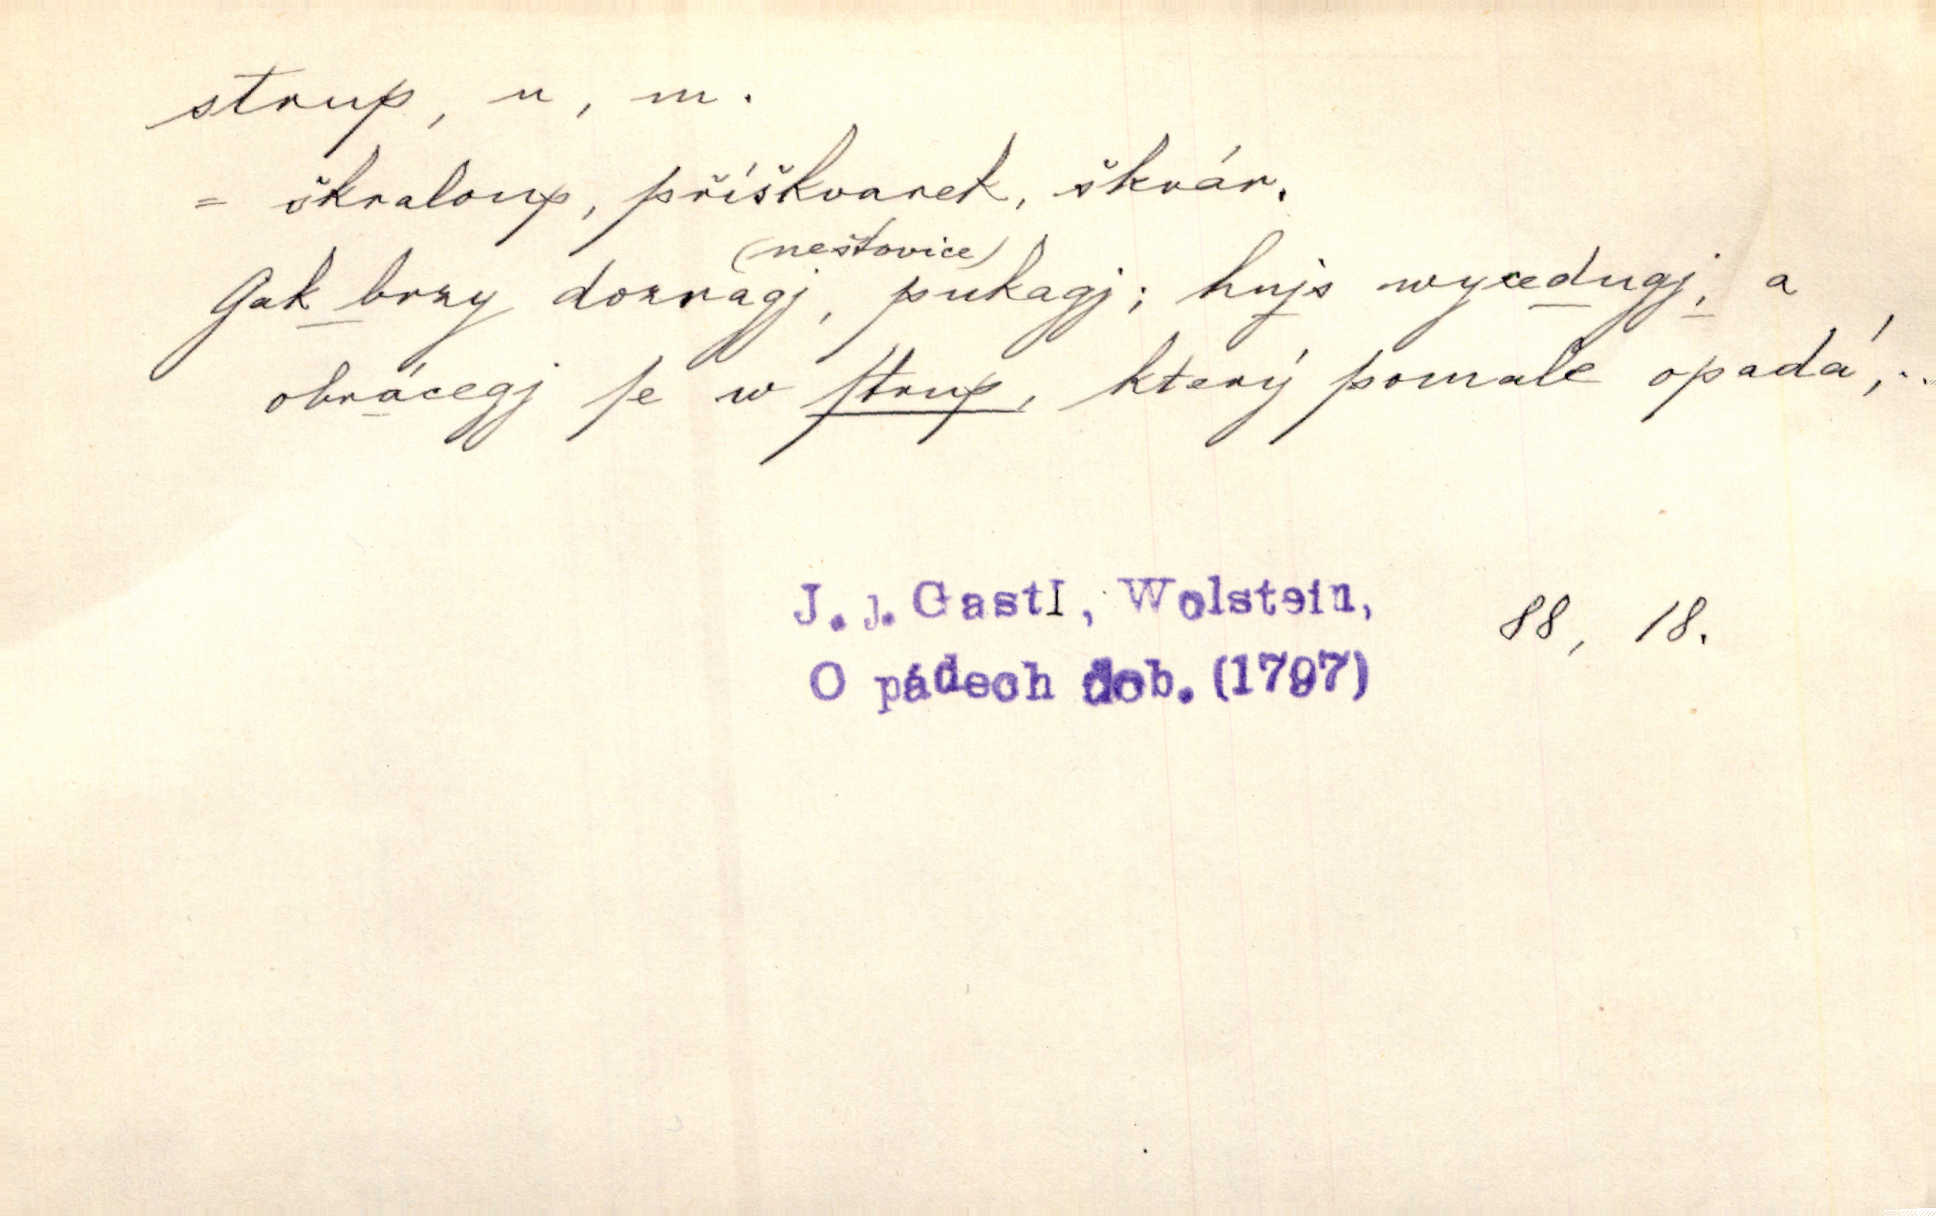 strup, u, m.
= škraloup, příškvarek, škvár.
(neštovice)
Gak brzy dozragj, pukagj; hnjs wycedugj, a
obrácegj se w strup, který pomale opadá,..
J. J. Gastl, Wolstein, 88, 18.
O pádech dob. (1797)